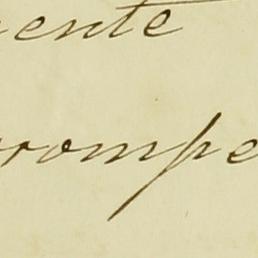 ente
rompe